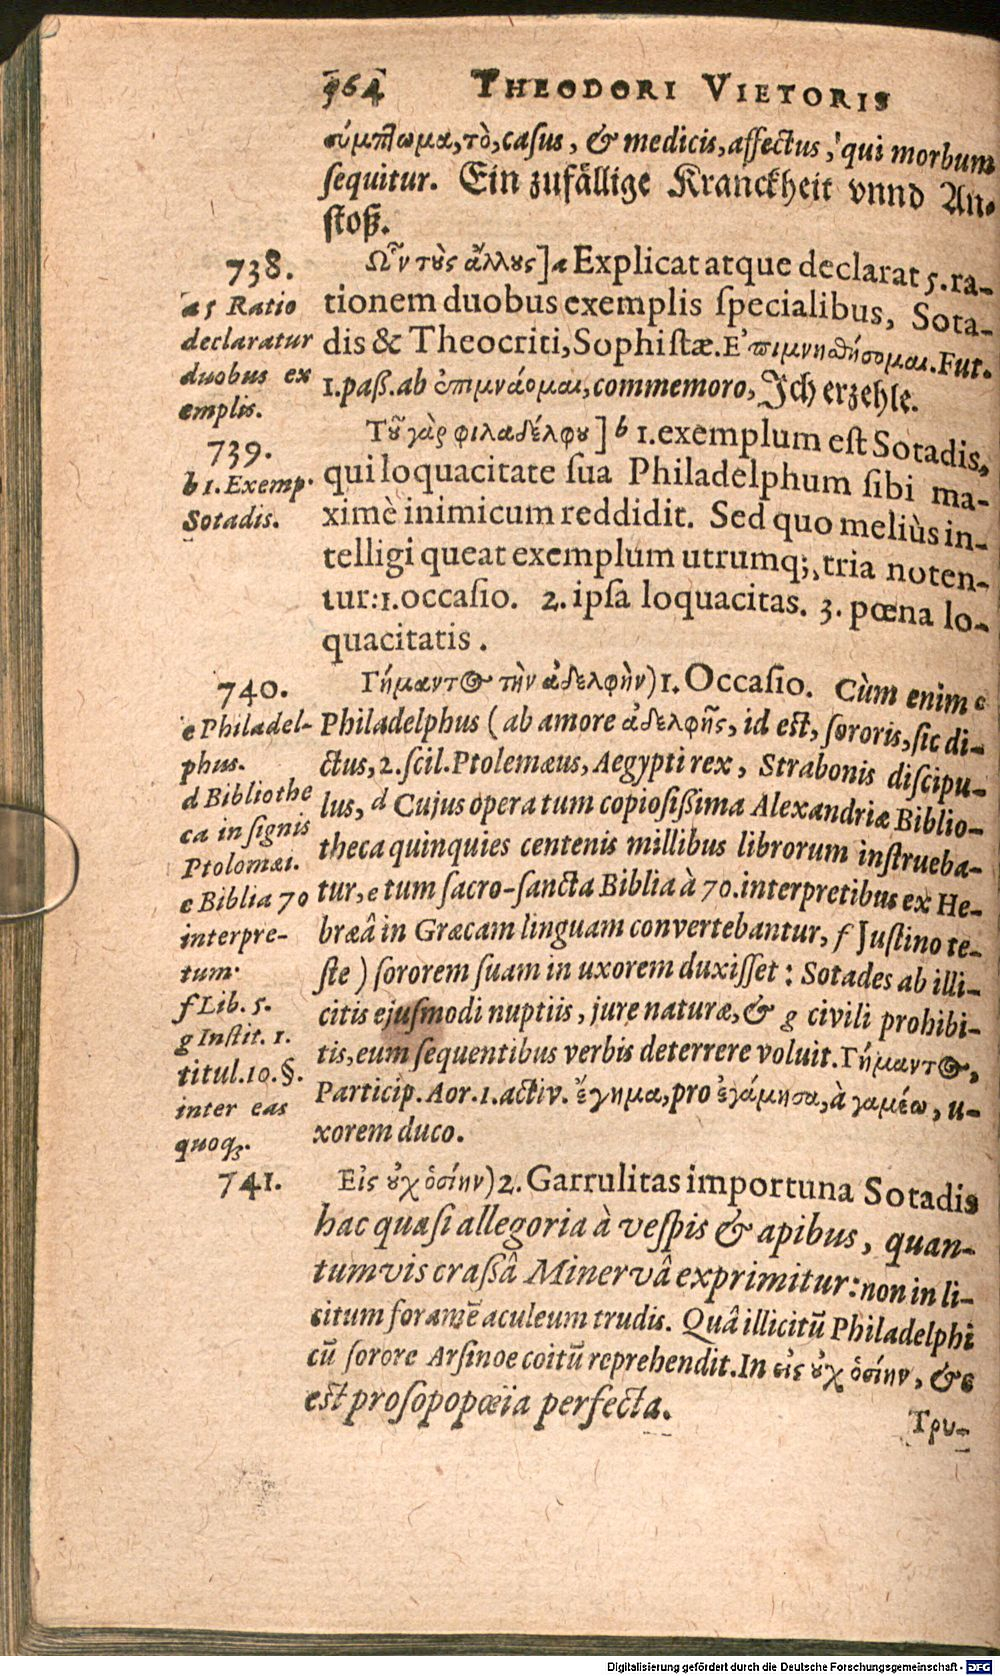 964 THEODORI VIETORIS
σύμπτωμα, τὸ, casus, & medicis, affectus, qui morbum
sequitur. Ein zufällige Kranckheit vnnd An-
stoß.
738.
a 5 Ratio
declaratur
duobus ex
emplis.
Ωʼ͂ν τοὺς ἄλλους] a Explicat atque declarat 5. ra-
tionem duobus exemplis specialibus, Sota-
dis & Theocriti, Sophistæ. Ἐπιμνηθήσομαι. Fut.
1. paß. ab ἐπιμνάομαι, commemoro, Ich erzehle.
739.
b 1. Exemp.
Sotadis.
Τοῦ γὰρ φιλαδέλφου] b 1. exemplum est Sotadis,
qui loquacitate sua Philadelphum sibi ma-
ximè inimicum reddidit. Sed quo meliùs in-
telligi queat exemplum utrumq;, tria noten-
tur: 1. occasio. 2. ipsa loquacitas. 3. pœna lo-
quacitatis.
740.
c Philadel-
phus.
d Bibliothe
ca insignis
Ptolomæi.
e Biblia 70
interpre-
tum.
f Lib. 5.
g Instit. 1.
titul. 10. §.
inter eas
quoq;.
Γήμαντος τὴν ἀδελφὴν) 1. Occasio. Cùm enim c
Philadelphus (ab amore ἀδελφῆς, id est, sororis, sic di-
ctus, 2. scil. Ptolemæus, Aegypti rex, Strabonis discipu-
lus, d Cujus opera tum copiosißima Alexandriæ Biblio-
theca quinquies centenis millibus librorum instrueba-
tur, e tum sacro-sancta Biblia à 70. interpretibus ex He-
bræâ in Græcam linguam convertebantur, f Justino te-
ste) sororem suam in uxorem duxisset: Sotades ab illi-
citis ejusmodi nuptiis, jure naturæ, & g civili prohibi-
tis, eum sequentibus verbis deterrere voluit. Γήμαντος,
Particip. Aor. 1. activ. ἔγημα, pro ἐγάμησα, à γαμέω, u-
xorem duco.
741.
Εἰς οὐχ ὁσίην) 2. Garrulitas importuna Sotadis
hac quasi allegoria à vespis & apibus, quan-
tumvis craßâ Minervâ exprimitur: non in li-
citum foramē aculeum trudis. Quâ illicitū Philadelphi
cū sorore Arsinoe coitū reprehendit. In εἰς οὐχ ὁσίην, &c
est prosopopœiia perfecta.
Τρυ-
Digitalisierung gefördert durch die Deutsche Forschungsgemeinschaft - DFG